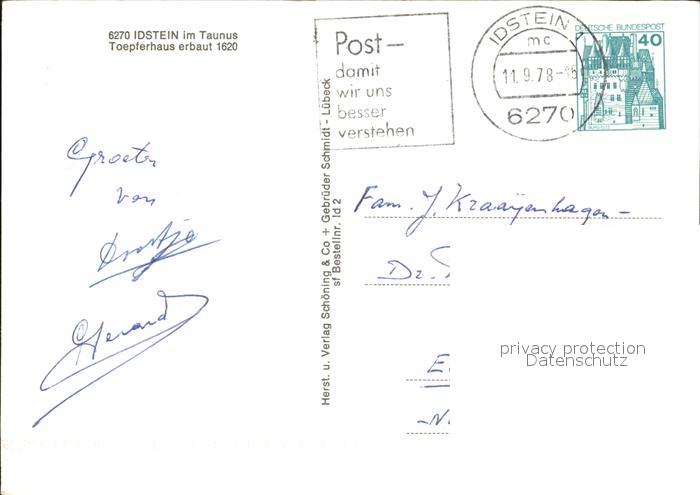 6270 IDSTEIN im Taunus
Toepferhaus erbaut 1620
Post-
damit
wir uns
besser
verstehen
IDSTEIN
mc
11.9.78-
6270
DEUTSCHE BUNDESPOST
40
BURG ELTZ
Groeten
van
Gerard
Herst. u. Verlag Schöning & Co + Gebrüder Schmidt - Lübeck
sf Bestellnr. Id 2
Fam. J. Kraayenhagen-
Dr.
E
-N
privacy protection
Datenschutz